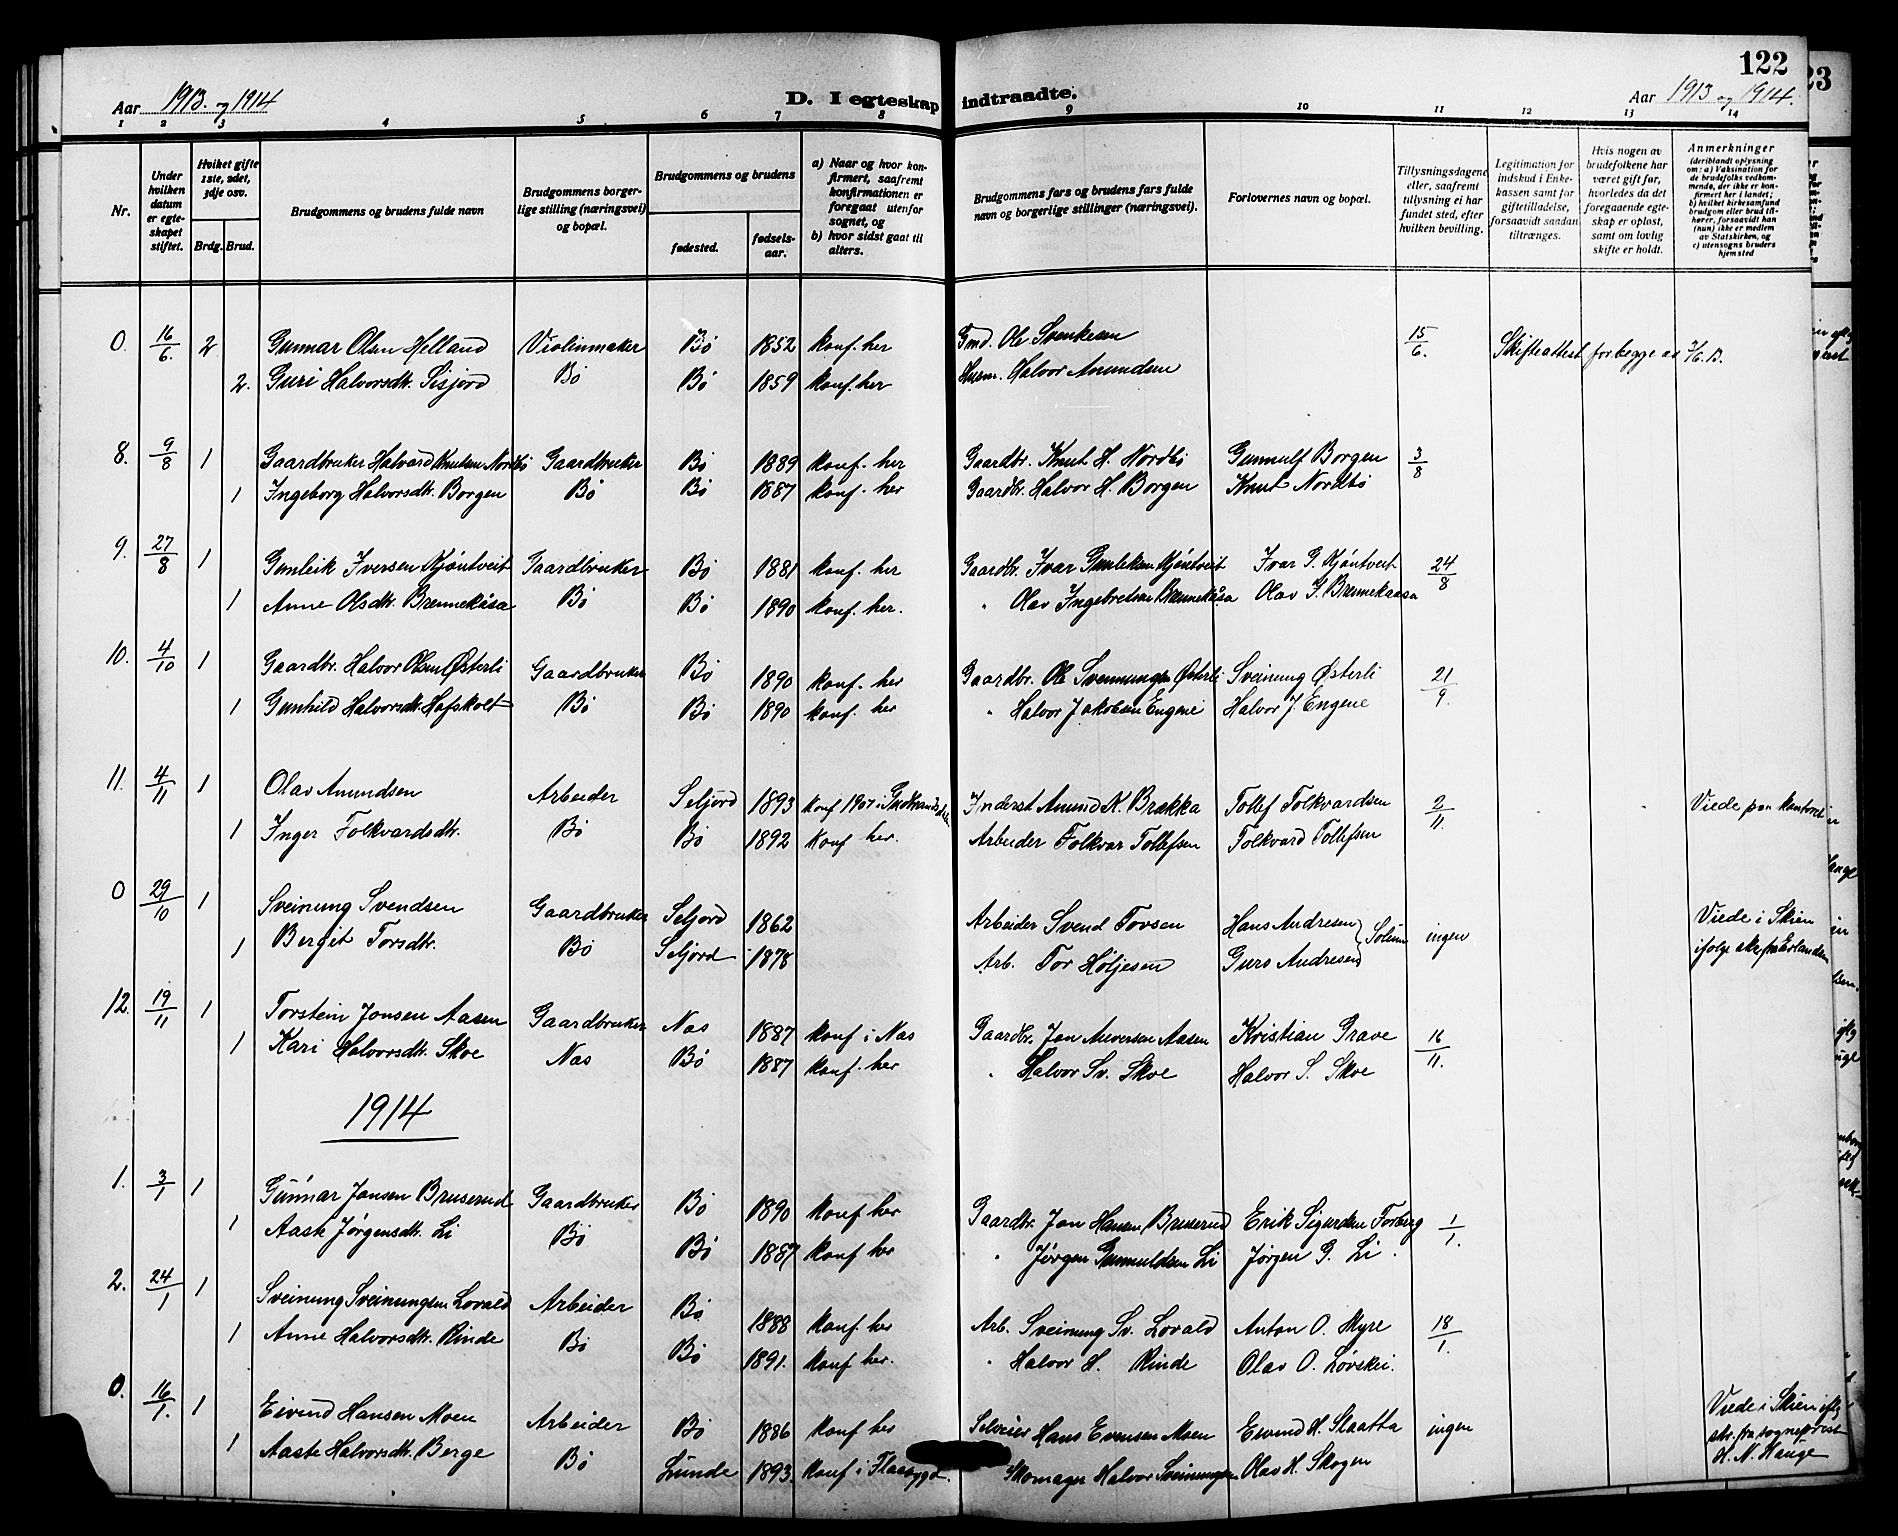 122
23
Aar 1913 og 1914
D. I egteskap indtraadte.
Aar 1913 og 1914.
1 2 3 4 5 6 7 8 9 10 11 12 13 14
Nr.
Under hvilken datum er egteskapet stiftet.
Hviket gifte 1ste, 2det, 3dje osv.
Brdg. Brud.
Brudgommens og brudens fulde navn
Brudgommens borgerlige stilling (næringsvei) og bopæl.
Brudgommens og brudens
fødested.
fødselsaar.
a) Naar og hvor konfirmert, saafremt konfirmationen er foregaat utenfor sognet, og
b) hvor sidst gaat til alters.
Brudgommens fars og brudens fars fulde navn og borgerlige stillinger (næringsvei).
Forlovernes navn og bopæl.
Tillysningsdagene eller, saafremt tillysning ei har fundet sted, efter hvilken bevilling.
Legitimation for indskud i Enkekassen samt for giftetilladelse, forsaavidt saadan tiltrænges.
Hvis nogen av brudefolkene har været gift før, hvorledes da det foregaaende egteskap er opløst, samt om lovlig skifte er holdt.
Anmerkninger
(deriblandt oplysning om: a) Vaksination for de brudefolks vedkommende, der ikke er konfirmert her i landet; b) hvilket kirkesamfund brudgom eller brud tilhører, forsaavidt han (hun) ikke er medlem av Statskirken, og c) utensogns bruders hjemsted
0. 16/6 2 Gunnar Olsen Helland Violinmaker Bø 1852 konf. her Gmd. Ole Svenksen 15/6. Skifteattest for begge av 7/6. B.
2. Guri Halvorsdtr. Sisjord Bø Bø 1859 konf. her Husm. Halvor Amundsen
8. 9/8 1 Gaardbruker Halvard Knutsen Nordbø Gaardbruker Bø 1889 konf. her Gaardbr. Knut H. Nordbø Gunnulf Borgen 3/8
1 Ingeborg Halvorsdtr. Borgen Bø Bø 1887 konf. her Gaardbr. Halvor H. Borgen Knut Nordbø
9. 27/8 1 Gunleik Iversen Kjøntveit Gaardbruker Bø 1881 konf. her Gaardbr. Ivar Gunleksen Kjøntveit Ivar G. Kjøntveit 24/8
1 Anne Olsdtr. Brennekåsa Bø Bø 1890 konf. her. " Olav Ingebretsen Brennekåsa Olav I. Brennekaasa
10. 4/10 1 Gaardbr. Halvor Olsen Østerli Gaardbruker Bø 1890 konf. her Gaardbr. Ole Svennungsen Østerli Sveinung Østerli 21/9.
1 Gunhild Halvorsdtr. Hafskolt Bø Bø 1890 konf. her " Halvor Jakobsen Engene Halvor J. Engene
11. 4/11 1 Olav Amundsen Arbeider Seljord 1893 konf 1907 i Gudbrandsdalen Inderst Amund K. Brækka Tollef Folkvardsen 2/11. Viede paa kontoret
1 Inger Folkvardsdtr. Bø Bø 1892 konf her. Arbeider Folkvar Tollefsen Folkvard Tollefsen
0 29/10 1 Sveinung Svendsen Gaardbruker Seljord 1862 Arbeider Svend Tovsen Hans Andresen } Solum ingen Viede i Skien
1 Bergit Torsdtr. Bø Seljord 1878 Arb. Tor Høljesen Guro Andresen ifølge skr. fra Erlandsen
12. 19/11 1 Torstein Jonsen Aasen Gaardbruker Nas 1887 konf i Nas Gaardbr. Jon Aasen Kristian Grave 16/11.
1 Kari Halvorsdtr. Skoe Nas Bø 1887 konf. her " Halvor Sv. Skoe Halvor S. Skoe
1914
1. 3/1 1 Gunnar Jonsen Bruserud Gaardbruker Bø 1890 konf her Gaardbr. Jon Hansen Bruserud Erik Sigurdsen Forberg 1/1.
1 Aaste Jørgensdtr. Li Bø Bø 1887 konf her " Jørgen Gunnuldsen Li Jørgen G. Li.
2. 24/1 1 Sveinung Sveinungsen Lovald Arbeider Bø 1888 konf her Arb. Sveinung Sv. Lovald Anton O. Myre 18/1.
1 Anne Halvorsdtr. Rinde Bø Bø 1891. konf her. " Halvor H. Rinde Olav O. Løvskei.
0. 16/1. 1 Eivind Hansen Moen Arbeider Bø 1886 konf her Selveier Hans Evensen Moen Eivind H. Slaatta ingen Viede i Skien iflg
1 Aaste Halvorsdtr. Berge Bø Lunde 1893. konf i Flaabygd. Skomager Halvor Sveinungsen Olav H. Skogen skr. fra sogneprest H. N. Hauge